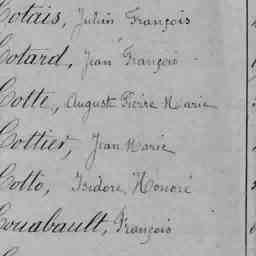 Cotais, Julien François
Cotard, Jean François
Cotte, Auguste Pierre Marie
Cottier, Jean Marie
Cotto, Isidore, Honoré
Couabault, François